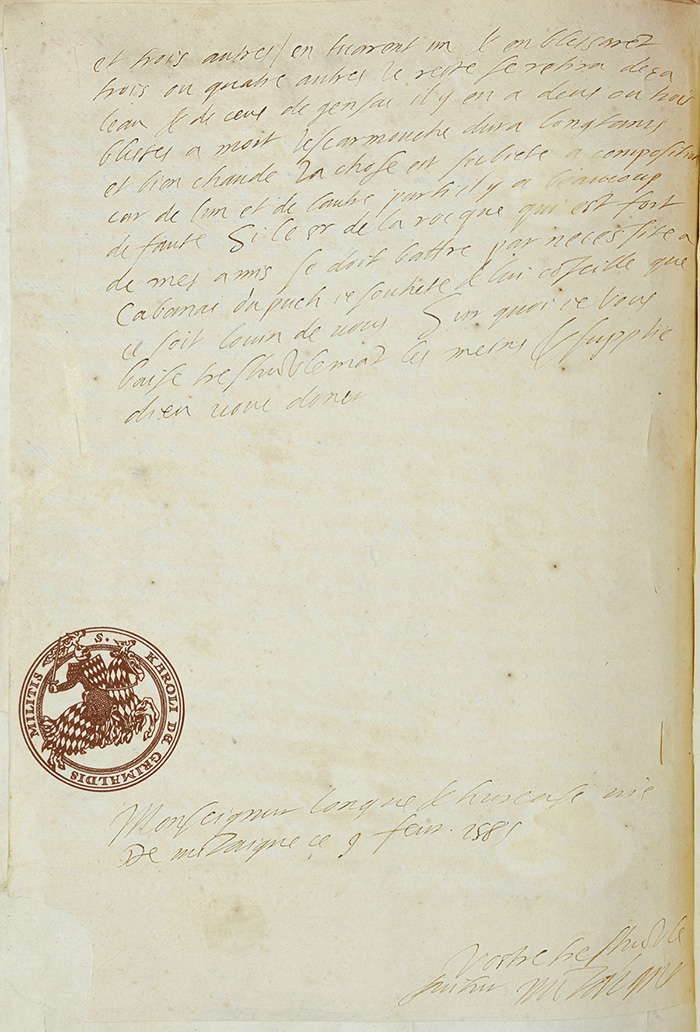 et trois autres / en tuarent un & en blessaret
trois ou quatre autres le reste se retira deça
leau & de ceus de gensac il y en a deus ou trois
blesses a mort lescarmouche dura longtams
et bien chaude La chose est subiete a composition
car de lun et de lautre parti il y a beaucoup
de faute Si le sr de la rocque qui est fort
de mes amis se doit battre par necessite a
Cabanac du puch ie souhete & lui coseille que
ce soit louin de vous Sur quoi ie vous
baise treshublemat les meins & supplie
dieu vous doner
S. KAROLI DE GRIMALDIS MILITIS
Monseignur longue & hureuse vie
De motaigne ce 9 feur. 1585
Vostre treshuble
seruitur motaigne